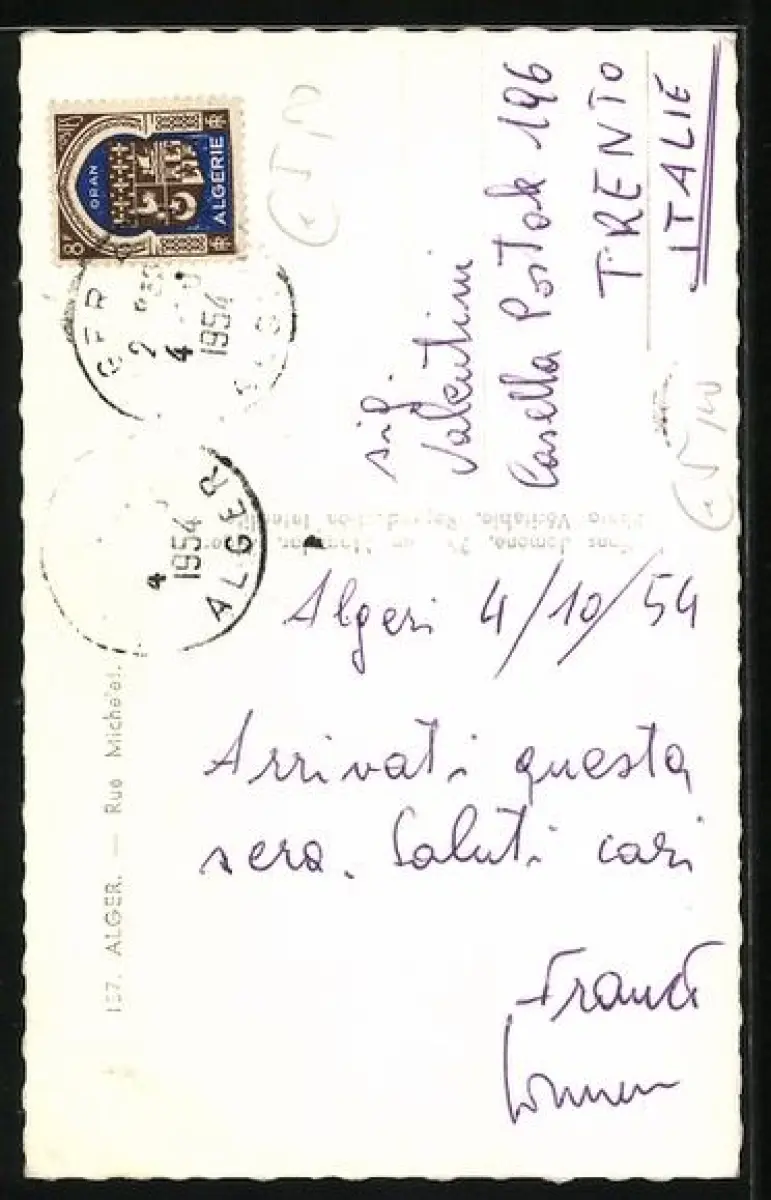 ORAN
ALGERIE
8
1954
4
ALGER
1954
4
sig.
Valentini
Casella Postale 196
TRENTO
ITALIE
Algeri 4/10/54
Arrivati questa
sera. Saluti cari
157. ALGER. — Rue Michelet.
Véritable, Reproduction Interdite